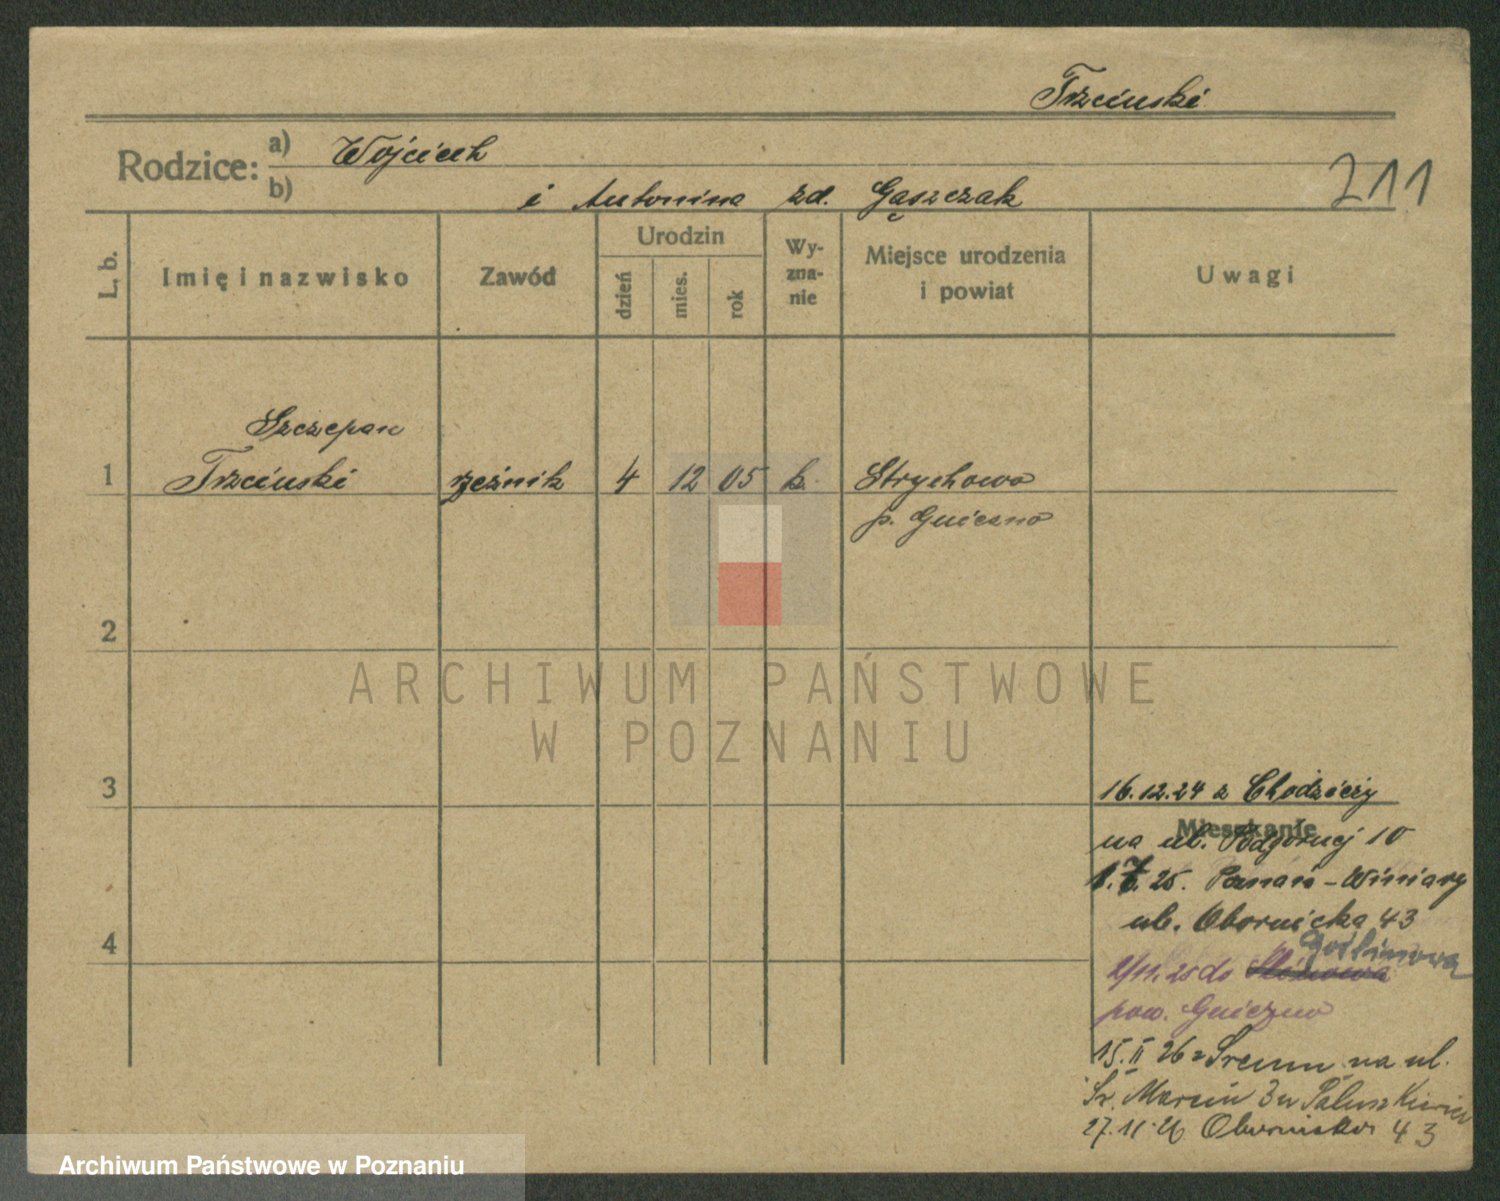 Trzcinski
Rodzice: a) Wojciech
b) i Antonina zd. Gąszczak
211
L. b.
Imię i nazwisko
Zawód
Urodzin
dzień
mies.
rok
Wy-
zna-
nie
Miejsce urodzenia
i powiat
Uwagi
Szczepan
1 Trzcinski rzeźnik 4 12 05 k. Strychowo
p. Gniezno
2
3
4
16.12.24 z Chodzieży
Mieszkanie
na ul. Podgórnej 10
1.7.25. Poznań-Winiary
ul. Obornicka 43
Goślinowa
2/11.25 do
pow. Gniezno
15.II 26 z Sremu na ul.
Św. Marcin 3 u Paluszkiewicz
27.11.26 Obornicka 43
ARCHIWUM PAŃSTWOWE
W POZNANIU
Archiwum Państwowe w Poznaniu